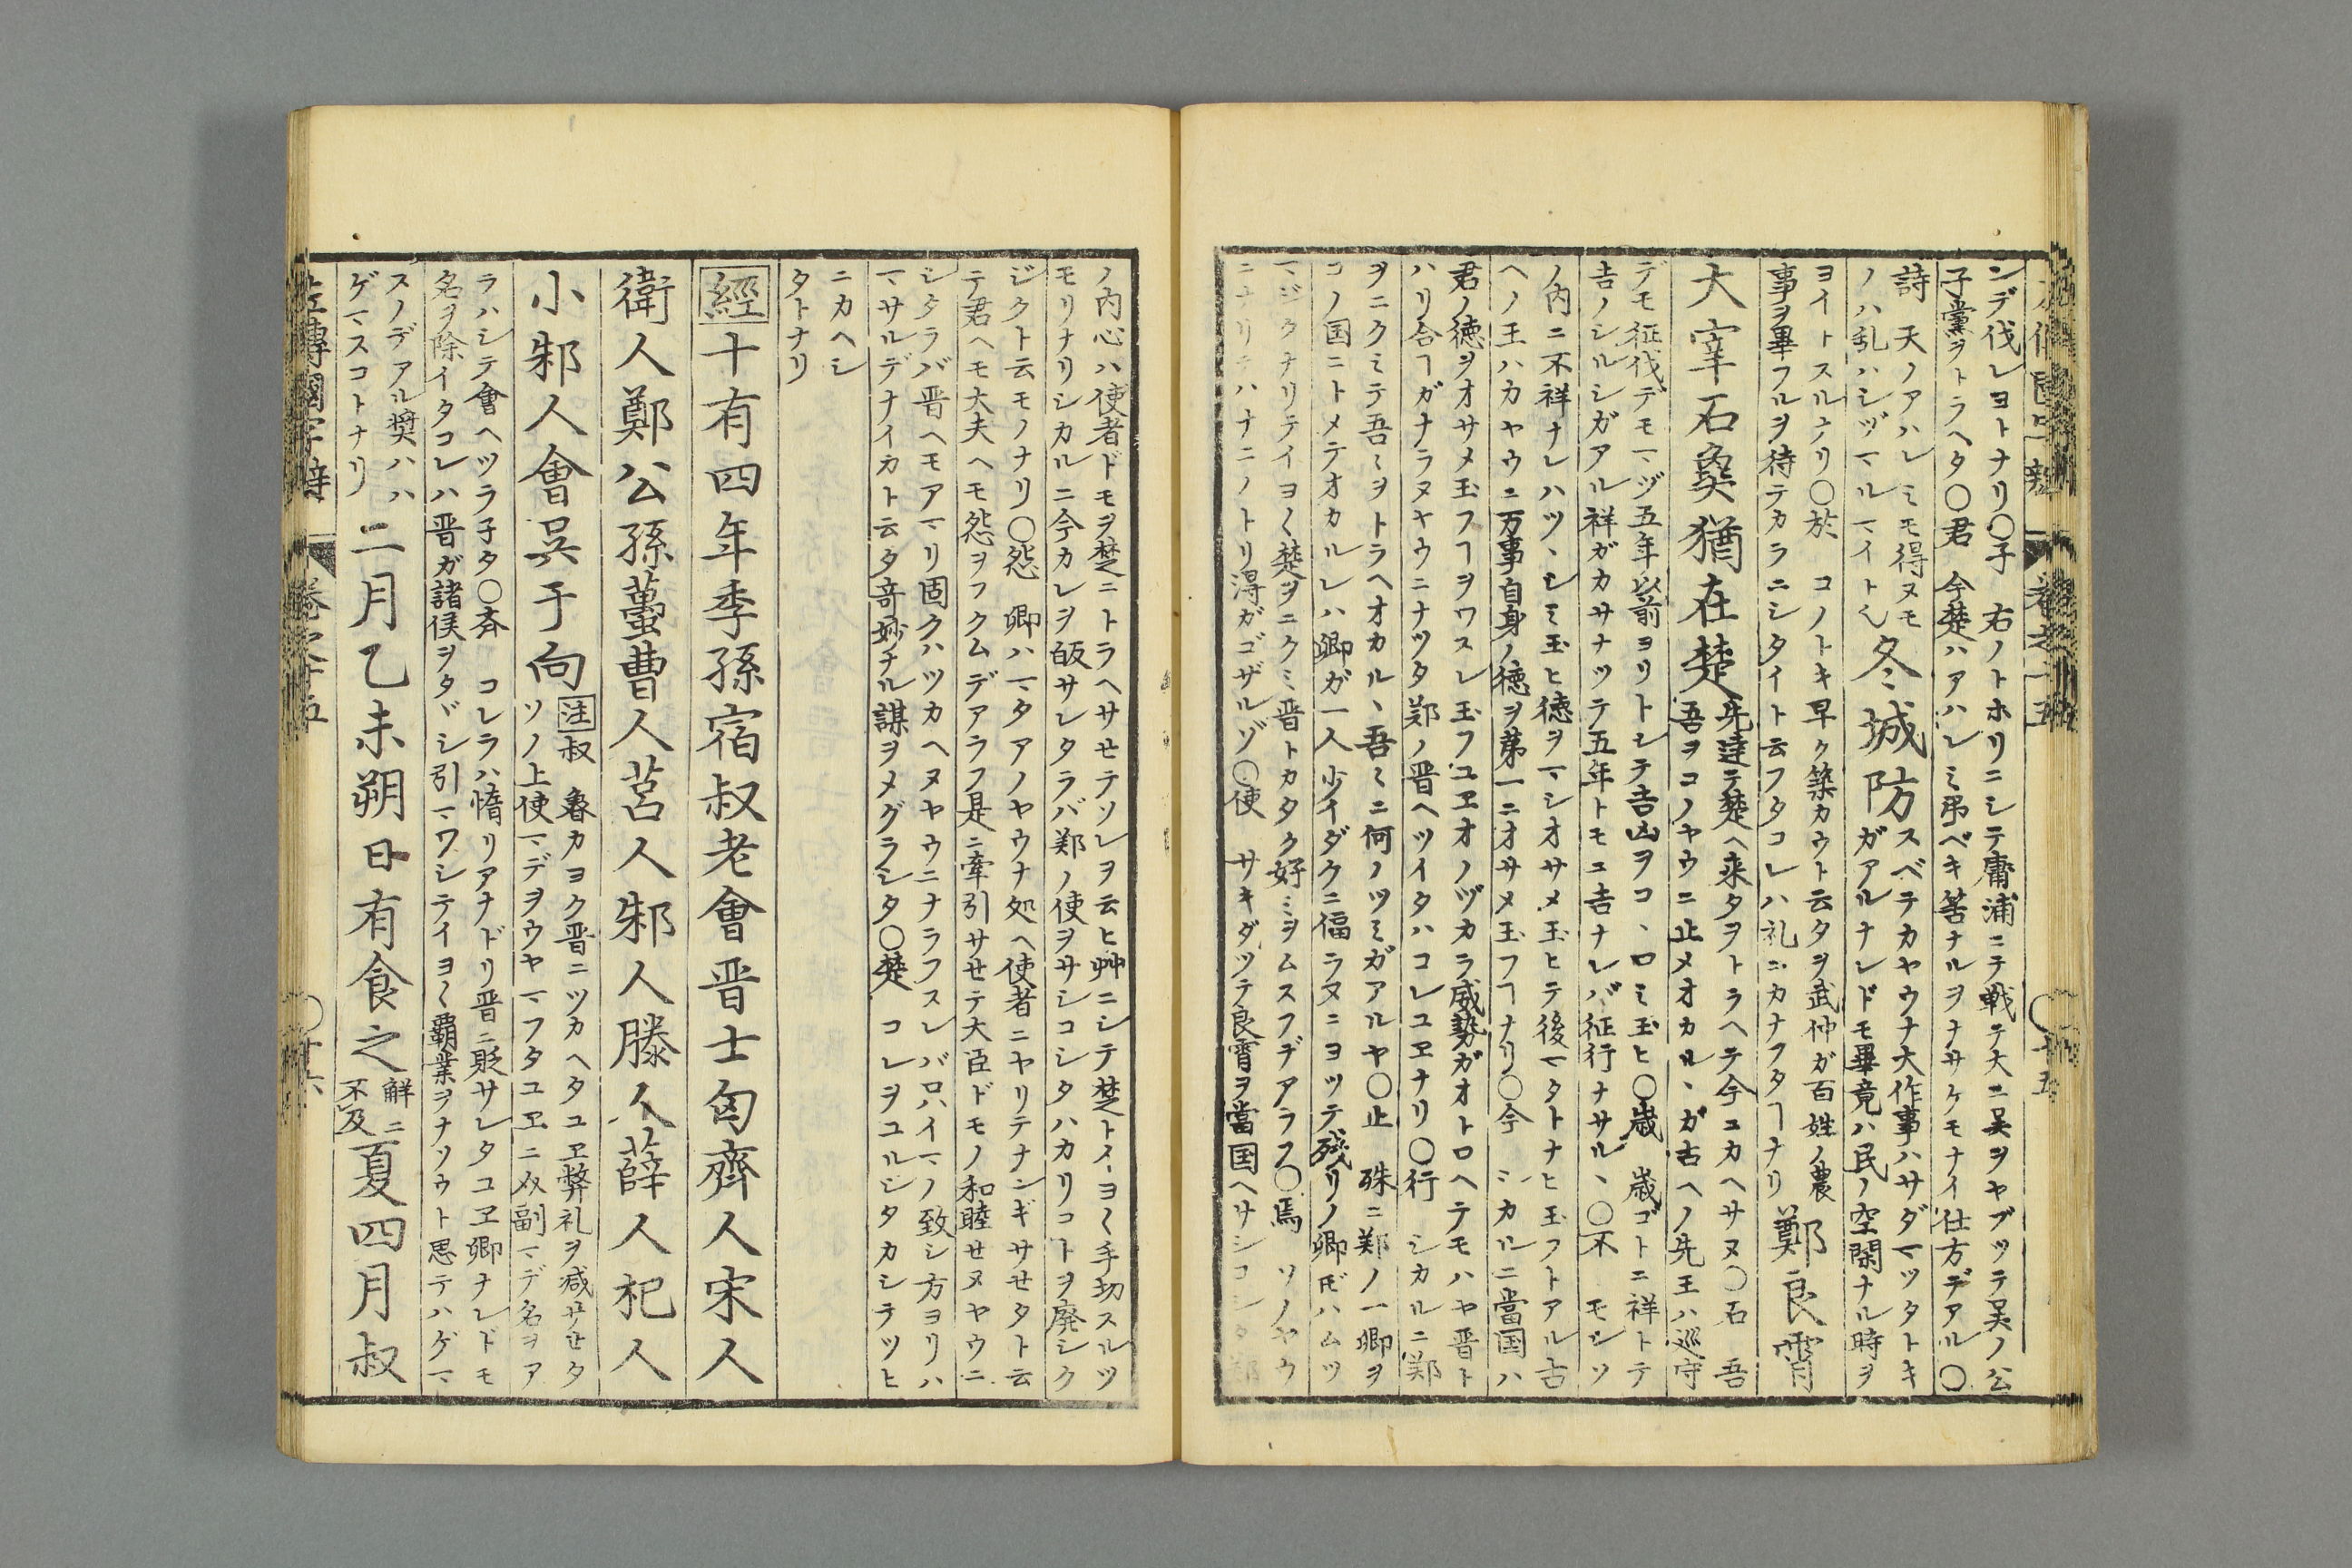 ンデ伐レヨトナリ〇子　右ノトホリニシテ庸浦ニテ戦テ大ニ吴ヲヤブツテ吴ノ公
子黨ヲトラヘタ〇君　今楚ハアハレミ弔ベキ筈ナルヲナサケモナイ仕方デアル〇
詩　天ノアハレミモ得ヌモ
ノハ乱ハシヅマルマイト乀
冬城防
スベテカヤウナ大作事ハサダマツタトキ
ガアルナレドモ畢竟ハ民ノ空閑ナル時ヲ
ヨイトスルナリ〇於　コノトキ早ク築カウト云タヲ武仲ガ百姓ノ農
事ヲ畢フルヲ待テカラニシタイト云フタコレハ礼ニカナフタヿナリ
鄭良霄
大宰石㚟猶在楚
先達テ楚ヘ来タヲトラヘテ今ニカヘサヌ〇石　吾
吾ヲコノヤウニ止メオカル丶ガ古ヘノ先王ハ巡守
デモ征伐デモマヅ五年以前ヨリトシテ吉凶ヲコ丶ロミ玉ヒ〇歳　歳ゴトニ祥トテ
吉ノシルシガアル祥ガカサナツテ五年トモニ吉ナレバ征行ナサル丶〇不　モシソ
ノ内ニ不祥ナレハツ丶シミ玉ヒ徳ヲマシオサメ玉ヒテ後マタトナヒ玉フトアル古
ヘノ王ハカヤウニ万事自身ノ徳ヲ第一ニオサメ玉フヿナリ〇今　シカルニ當国ハ
君ノ徳ヲオサメ玉フヿヲワスレ玉フユヱオノヅカラ威勢ガオトロヘテモハヤ晋ト
ハリ合ヿガナラヌヤウニナツタ鄭ノ晋ヘツイタハコレユヱナリ〇行　シカルニ鄭
ヲニクミテ吾々ヲトラヘオカル丶吾々ニ何ノツミガアルヤ〇止　殊ニ鄭ノ一卿ヲ
コノ国ニトメテオカルレハ卿ガ一人少イダケニ偪ラヌニヨツテ残リノ卿㐧ハムツ
マジクナリテイヨ〱楚ヲニクミ晋トカタク好ミヲムスフデアラフ〇焉　ソノヤウ
ニナリテハナニノトリ得ガゴザルゾ〇使　サキダツテ良霄ヲ當国ヘサシコシタ鄭
ノ内心ハ使者ドモヲ楚ニトラヘサセテソレヲ云ヒ艸ニシテ楚トイヨ〱手切スルツ
モリナリシカルニ今カレヲ皈サレタラバ鄭ノ使ヲサシコシタハカリコトヲ廃シク
ジクト云モノナリ〇怨　卿ハマタアノヤウナ処ヘ使者ニヤリテナンギサセタト云
テ君ヘモ大夫ヘモ怨ヲフクムデアラフ是ニ牽引サセテ大臣ドモノ和睦セヌヤウニ
シタラバ晋ヘモアマリ固クハツカヘヌヤウニナラフスレバロハイマノ致シ方ヨリハ
マサルデナイカト云タ奇妙ナル謀ヲメグラシタ〇楚　コレヲユルシタカシテツヒ
ニカヘシ
タトナリ
經十有四年季孫宿叔老會晋士匄齊人宋人
衛人鄭公孫蠆曹人莒人邾人滕人薛人杞人
小邾人會吴于向
注叔　魯カヨク晋ニツカヘタユヱ弊礼ヲ減サセタ
ソノ上使マデヲウヤマフタユヱニ㕝副マデ名ヲア
ラハシテ會ヘツラ子タ〇斉　コレラハ惰リアナドリ晋ニ貶サレタユヱ卿ナレドモ
名ヲ除イタコレハ晋ガ諸侯ヲタヾシ引マワシテイヨ〱覇業ヲナソウト思テハゲマ
スノデアル奨ハハ
ゲマスコトナリ
二月乙未朔日有食之
解ニ
不及
夏四月叔
左傳國字辯　巻之十五　〇十六